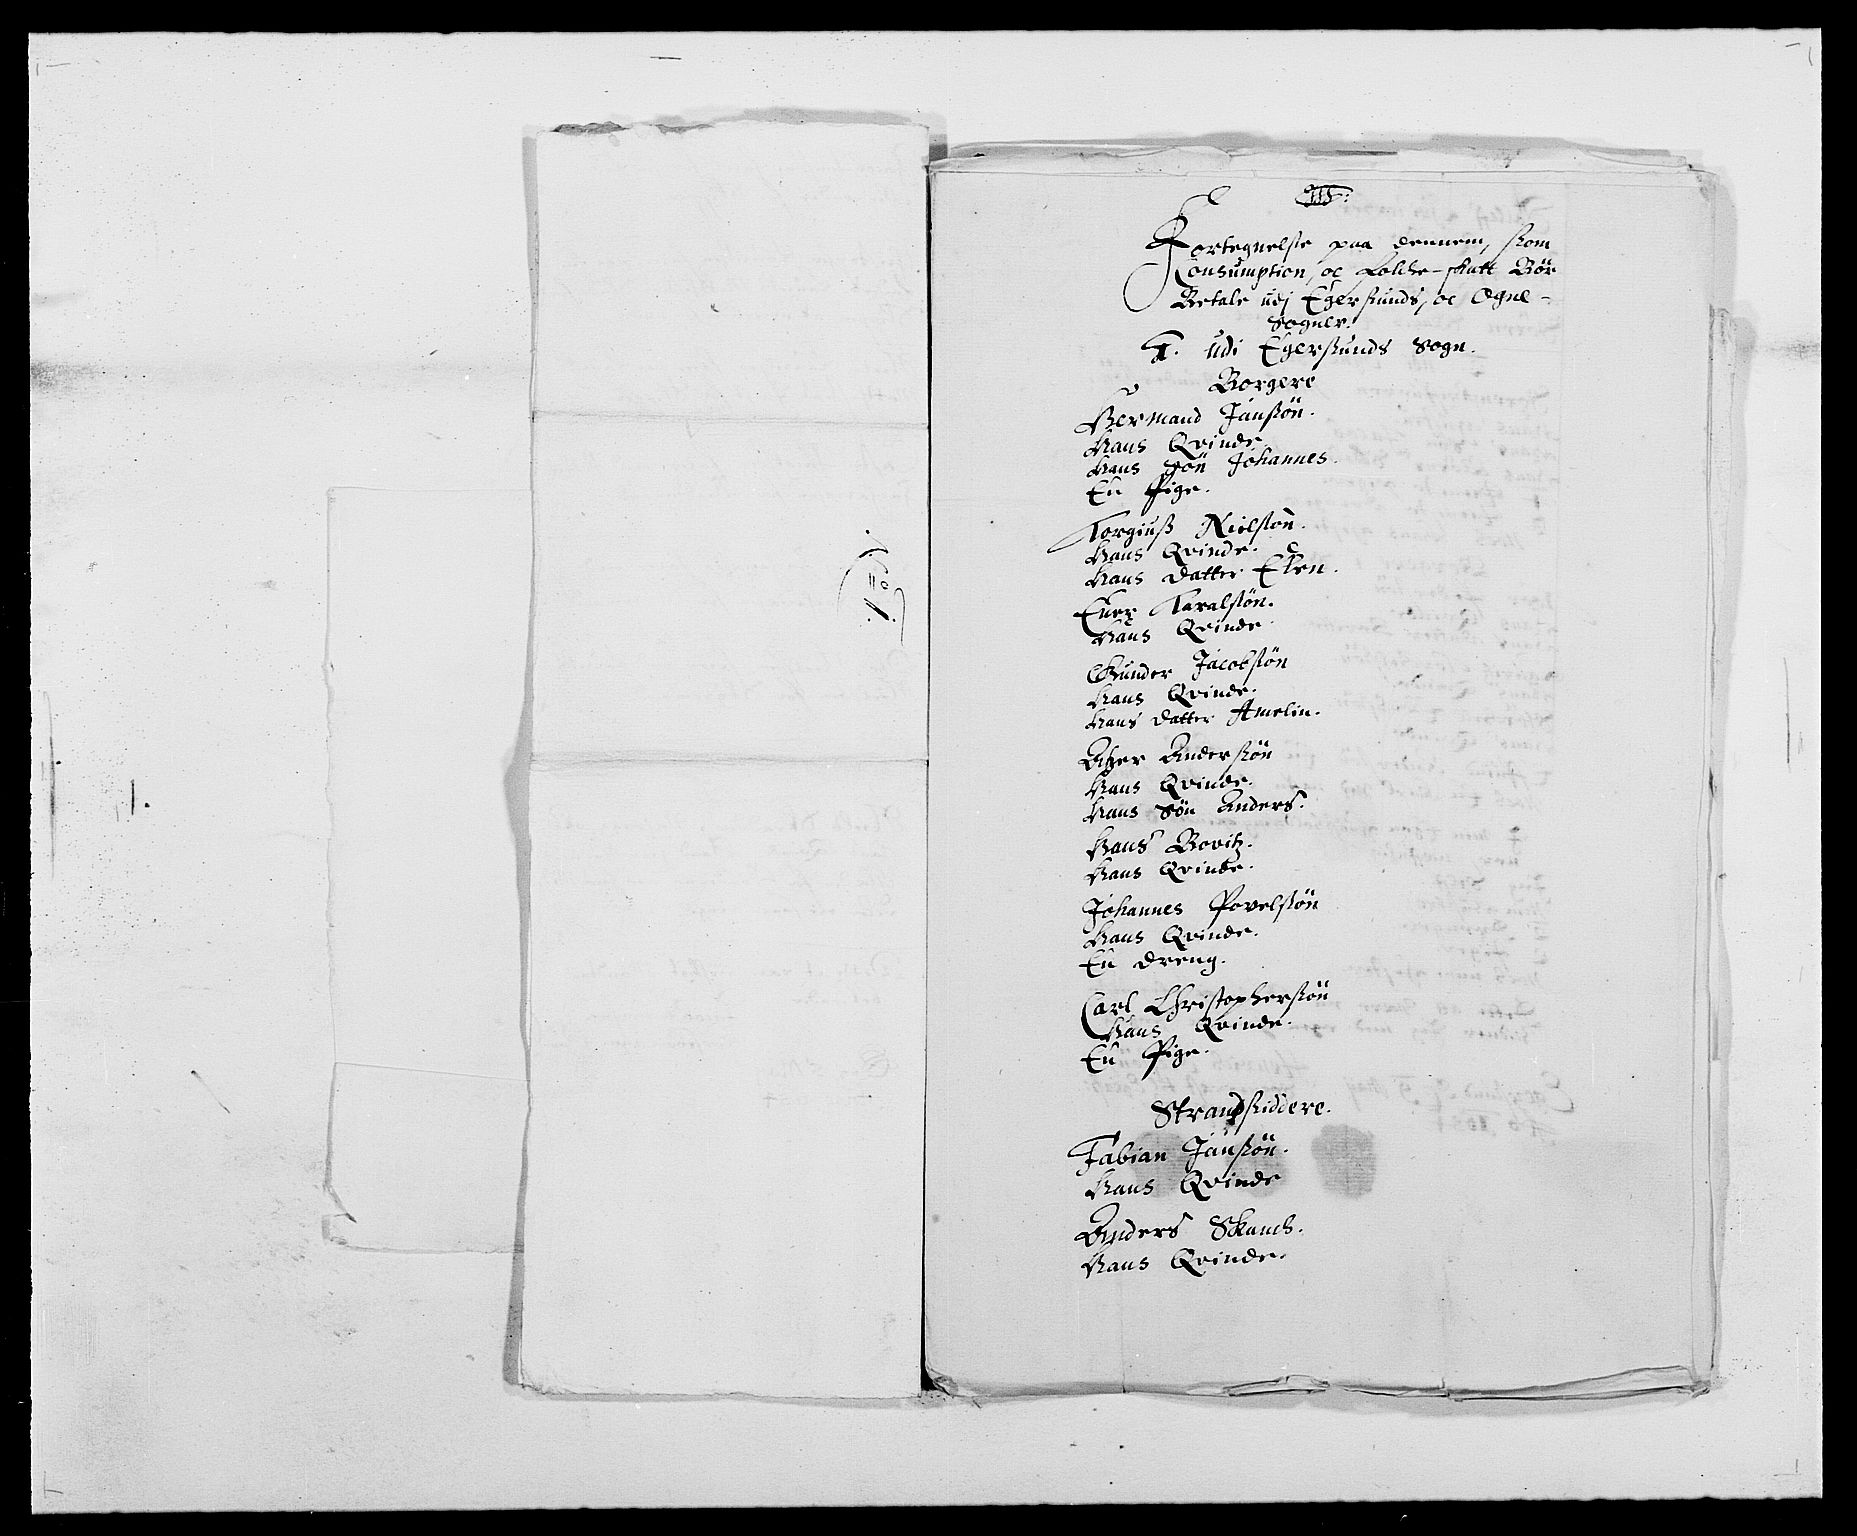 Fortegnelse paa dennem, som
Consumption, oc Folche-skatt Bör
Betale udj Egersunds, oc Ogne-
Sogner.
I. udi Egersunds Sogn.
Borgere
Hermand Jansön.
Hans Qvinde.
Hans Sön Johannes.
En Pige.
Torgiuss Nielssön.
Hans Qvinde.
Hans datter Elen.
Taralssön.
Hans Qvinde
Gunder Jacobssön
Hans Qvinde.
Hans datter Amelin.
Anderssön
Hans Qvinde.
Hans Sön Anders.
Hans Bovitz.
Hans Qvinde.
Johannes Povelssön
Hans Qvinde.
En dreng.
Carl Christopherssön
Hans Qvinde.
En Pige.
Strandsiddere.
Fabian Jansön.
Hans Qvinde
Anders Skanch.
Hans Qvinde.